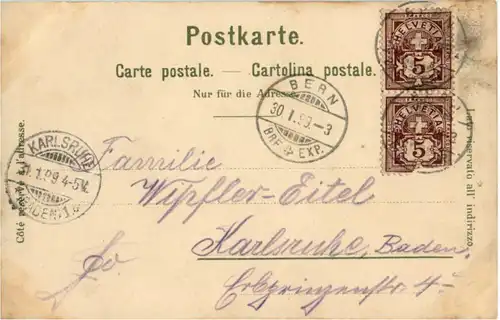 Postkarte.
Carte postale. — Cartolina postale.
Nur für die Adresse.
HELVETIA
5
HELVETIA
5
BERN
30.I.99.-3
BRF. EXP.
KARLSRUHE
1.99 4-5N.
(BADEN) 1.
Côté réservé à l'adresse.
Lato riservato all' indirizzo
Familie
Wipfler-Eitel
Karlsruhe, Baden.
Erbprinzenstr. 4